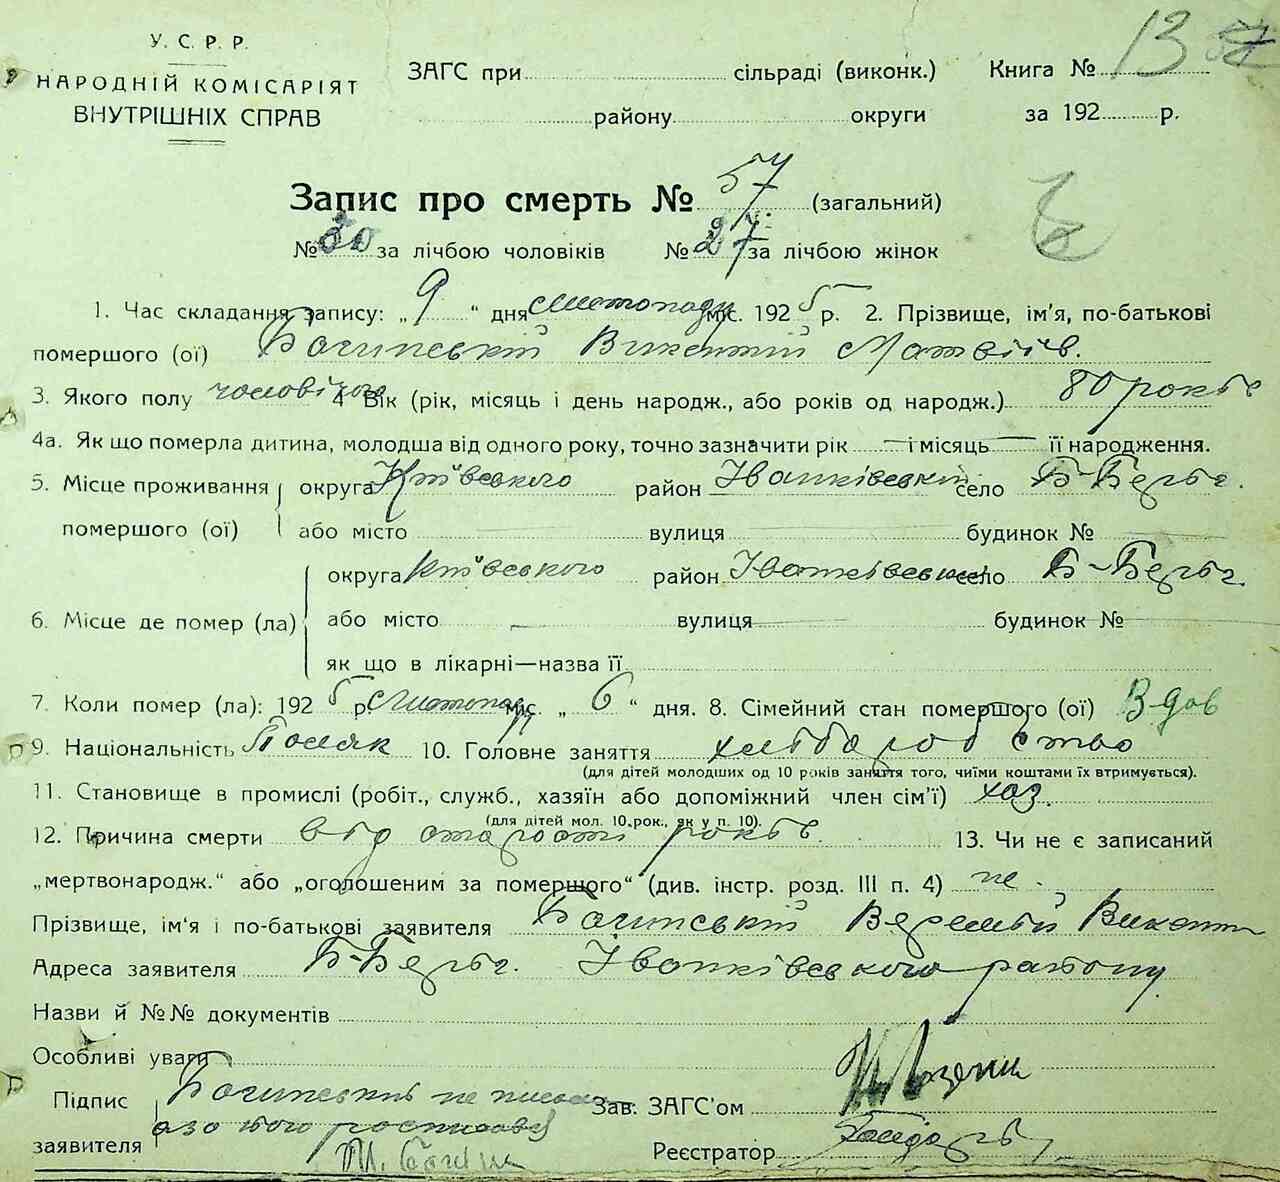 У. С. Р. Р.
НАРОДНІЙ КОМІСАРІЯТ
ВНУТРІШНІХ СПРАВ
ЗАГС при сільраді (виконк.)
району округи
Книга № 13
за 192 р.
Запис про смерть № 57 (загальний)
№ 30 за лічбою чоловіків № 27 за лічбою жінок
1. Час складання запису: „ 9 “ дня листопада міс. 1925 р. 2. Прізвище, ім'я, по-батькові
помершого (ої) Багинській Викентий Матвіїв.
3. Якого полу чоловічого 4 Вік (рік, місяць і день народж., або років од народж.) 80 років
4а. Як що померла дитина, молодша від одного року, точно зазначити рік — і місяць — її народження.
5. Місце проживання помершого (ої)
округа Київського район Іванківській село Б-Берег.
або місто вулиця будинок №
6. Місце де помер (ла)
округа Київського район Іванківській село Б-Берег.
або місто — вулиця будинок №
як що в лікарні—назва її
7. Коли помер (ла): 1925 р. листопад міс. „ 6 “ дня. 8. Сімейний стан помершого (ої) Вдов
9. Національність Поляк 10. Головне заняття хліборобство
(для дітей молодших од 10 років заняття того, чиїми коштами їх втримується).
11. Становище в промислі (робіт., служб., хазяїн або допоміжний член сім'ї) хаз.
(для дітей мол. 10 рок., як у п. 10).
12. Причина смерти від старости років. 13. Чи не є записаний
„мертвонародж.“ або „оголошеним за помершого“ (див. інстр. розд. III п. 4) не.
Прізвище, ім'я і по-батькові заявителя Багинській Веремій Викент
Адреса заявителя Б-Берег. Іванківського району
Назви й №№ документів
Особливі уваги
Підпис заявителя
Багинський не письм
а за його росписався
Зав. ЗАГС'ом
Реєстратор